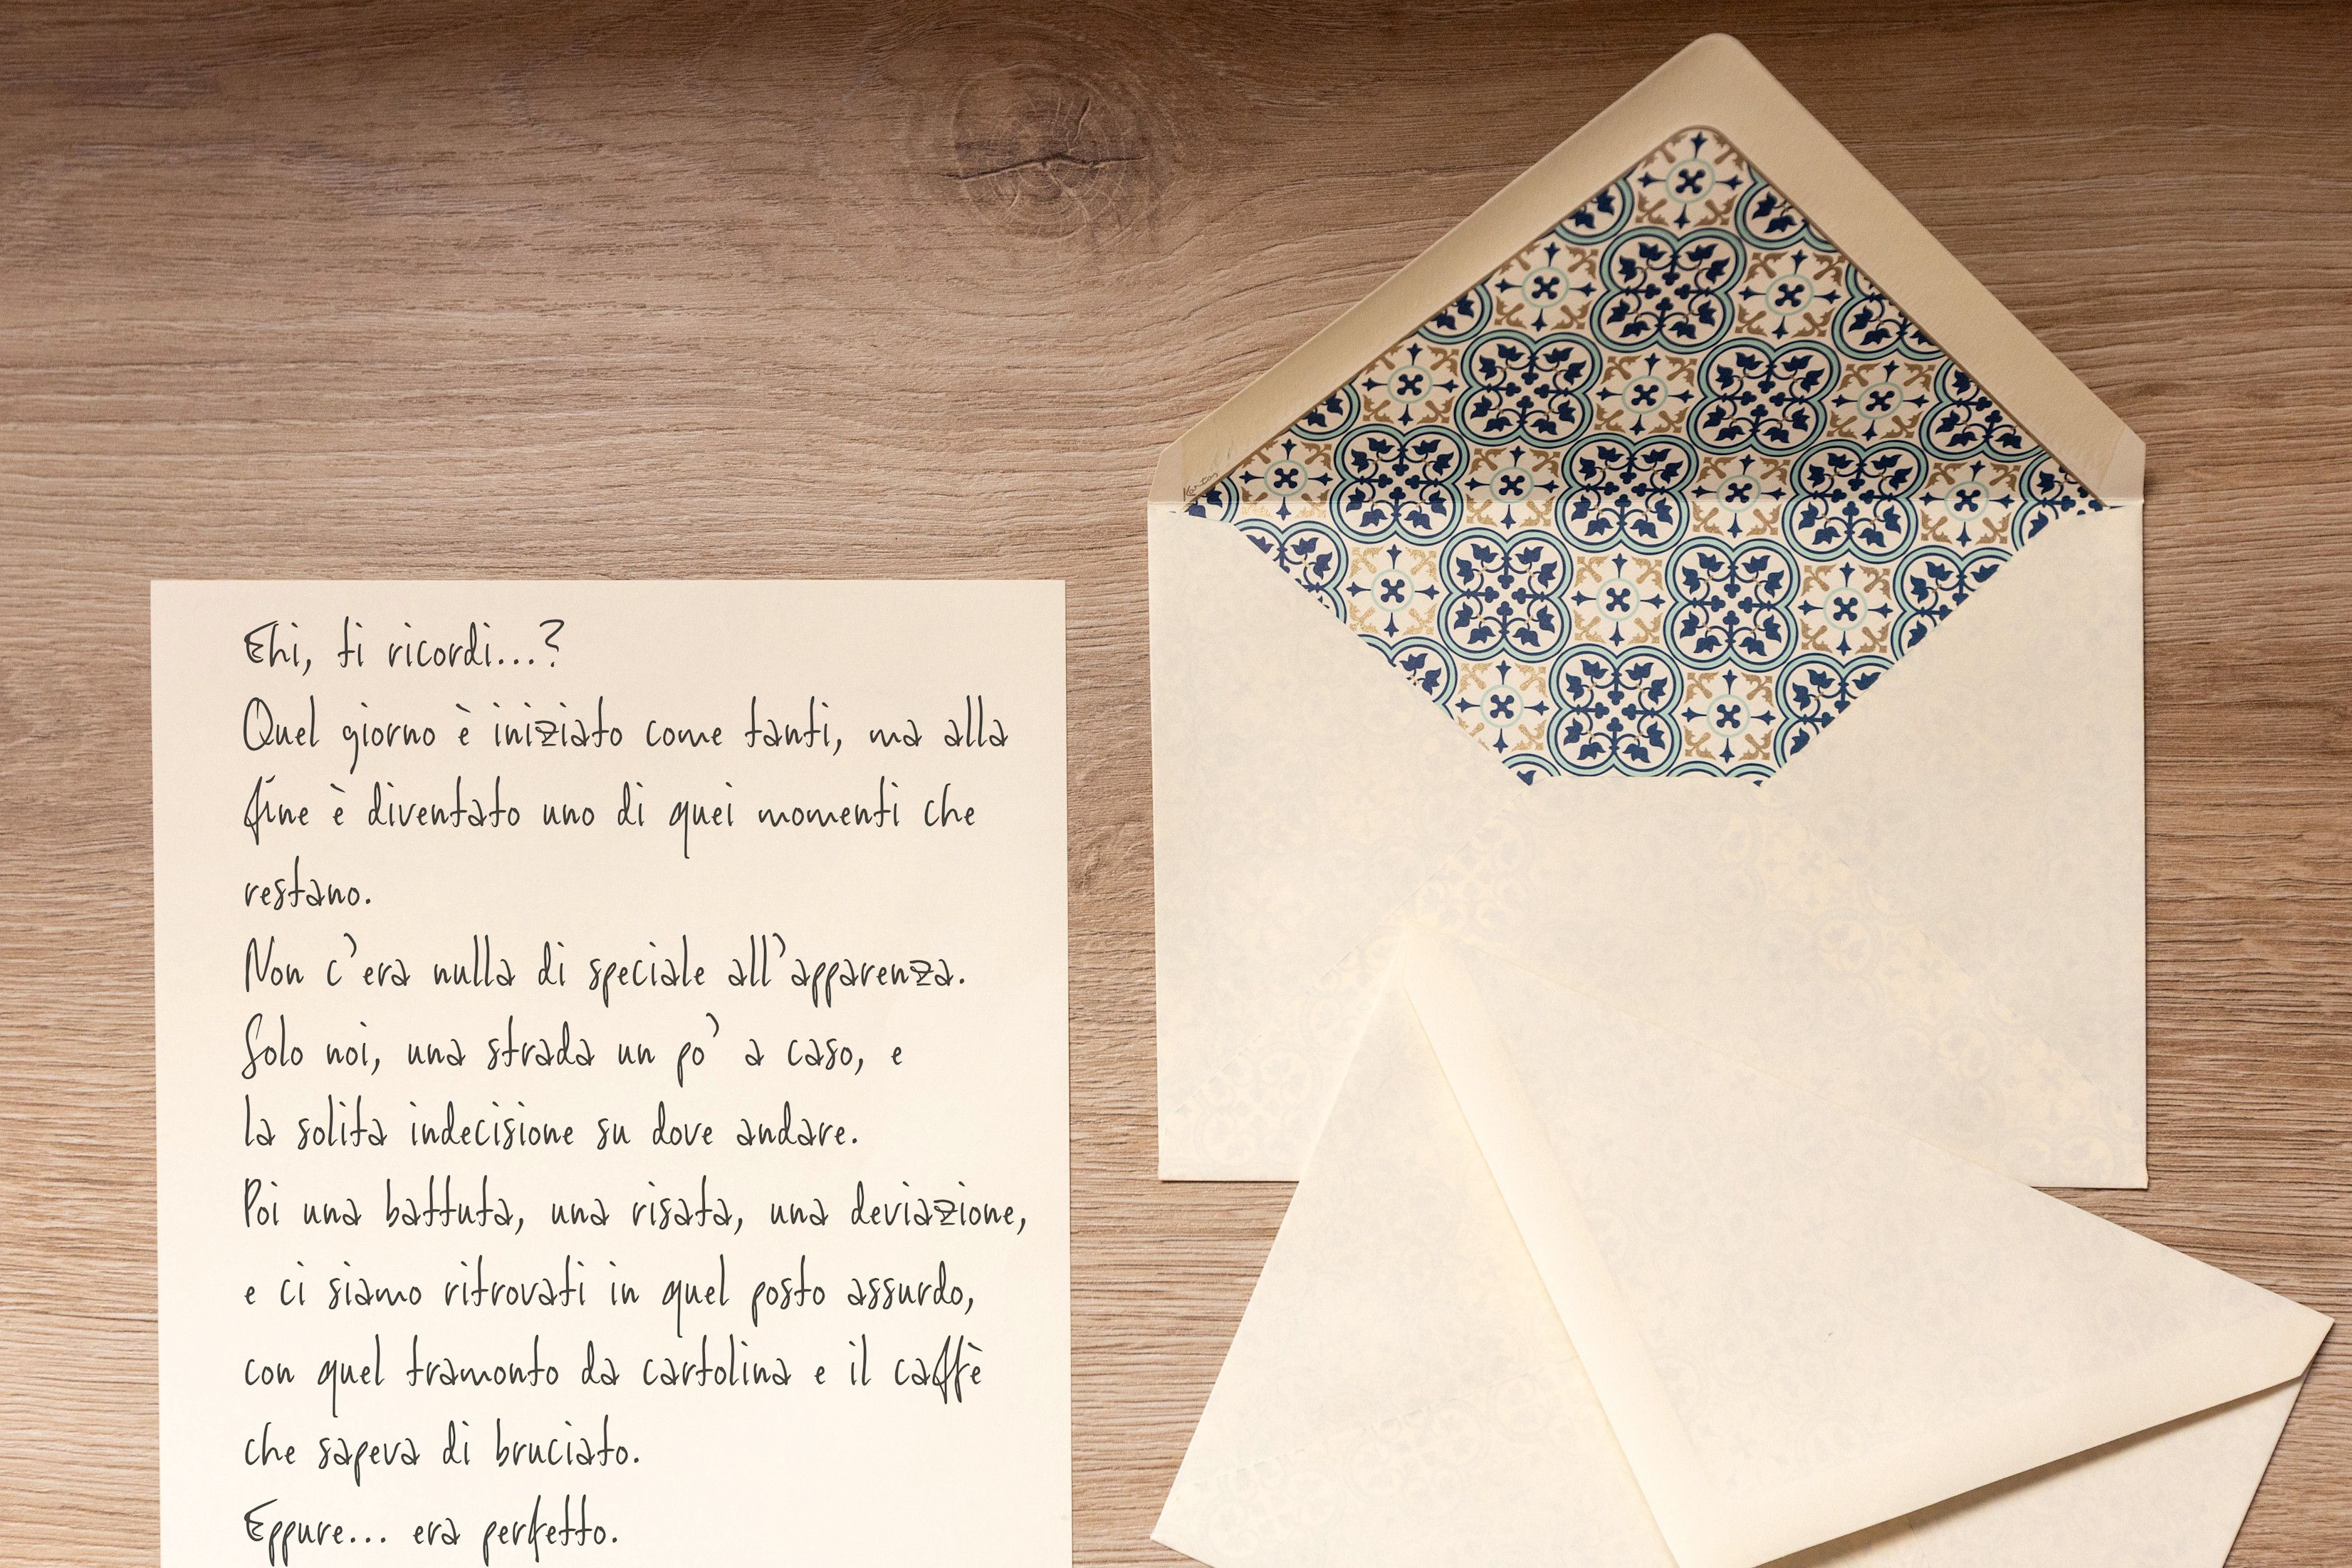 Ehi, ti ricordi...?
Quel giorno è iniziato come tanti, ma alla
fine è diventato uno di quei momenti che
restano.
Non c'era nulla di speciale all'apparenza.
Solo noi, una strada un po' a caso, e
la solita indecisione su dove andare.
Poi una battuta, una risata, una deviazione,
e ci siamo ritrovati in quel posto assurdo,
con quel tramonto da cartolina e il caffè
che sapeva di bruciato.
Eppure... era perfetto.